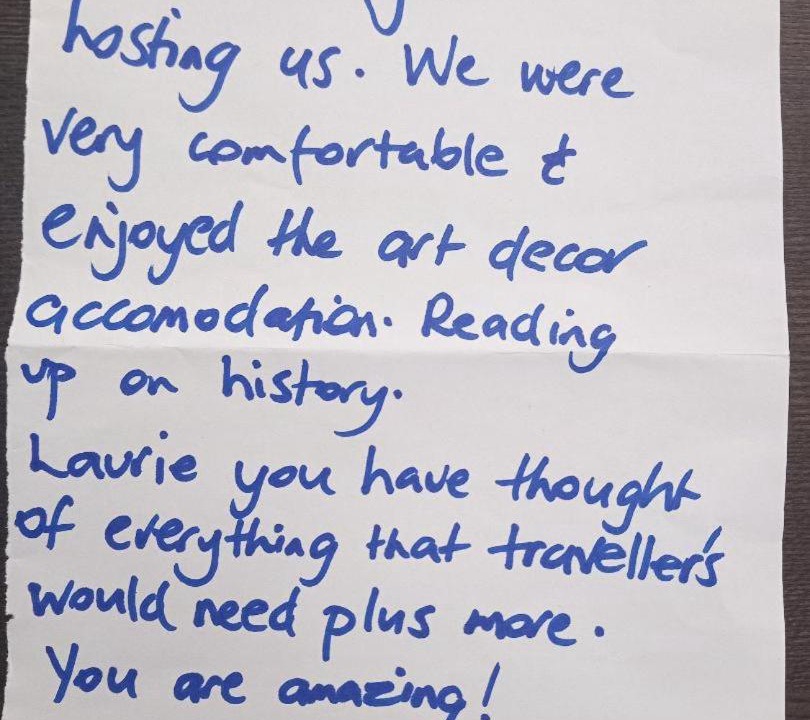 hosting us. We were
very comfortable &
enjoyed the art decor
accomodation. Reading
up on history.
Laurie you have thought
of everything that traveller's
would need plus more.
You are amazing!